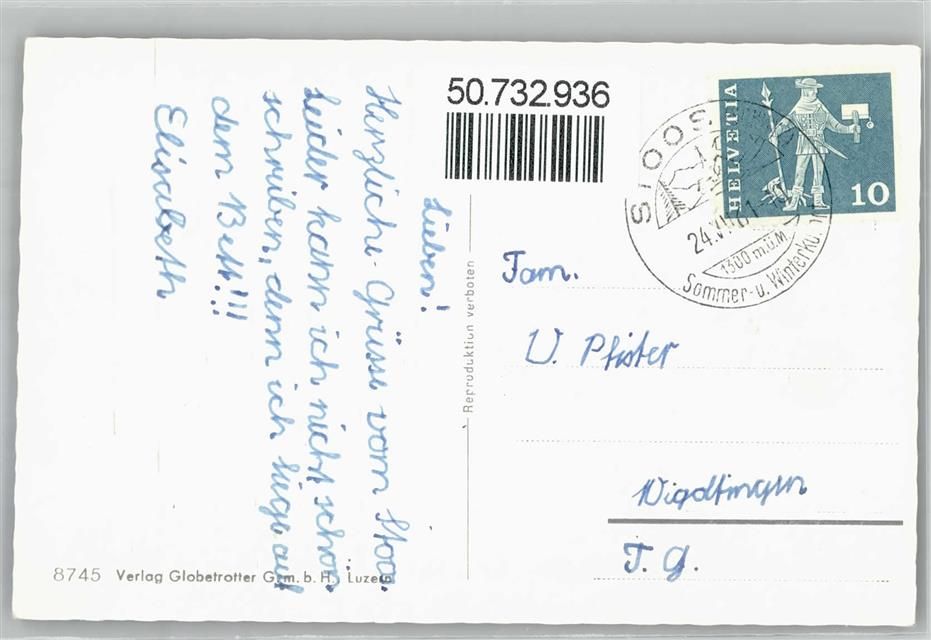 50.732.936
HELVETIA
10
STOOS
24.VI.61-10
1300 m.ü.M
Sommer- u. Winterku
Lieben!
Herzliche Grüsse vom Stoos.
Leider kann ich nicht schön
schreiben, denn ich liege auf
dem Bett!!!
Elisabeth
Reproduktion verboten
Fam.
U. Pfister
Wigoltingen
T. G.
8745 Verlag Globetrotter G.m.b.H., Luzern